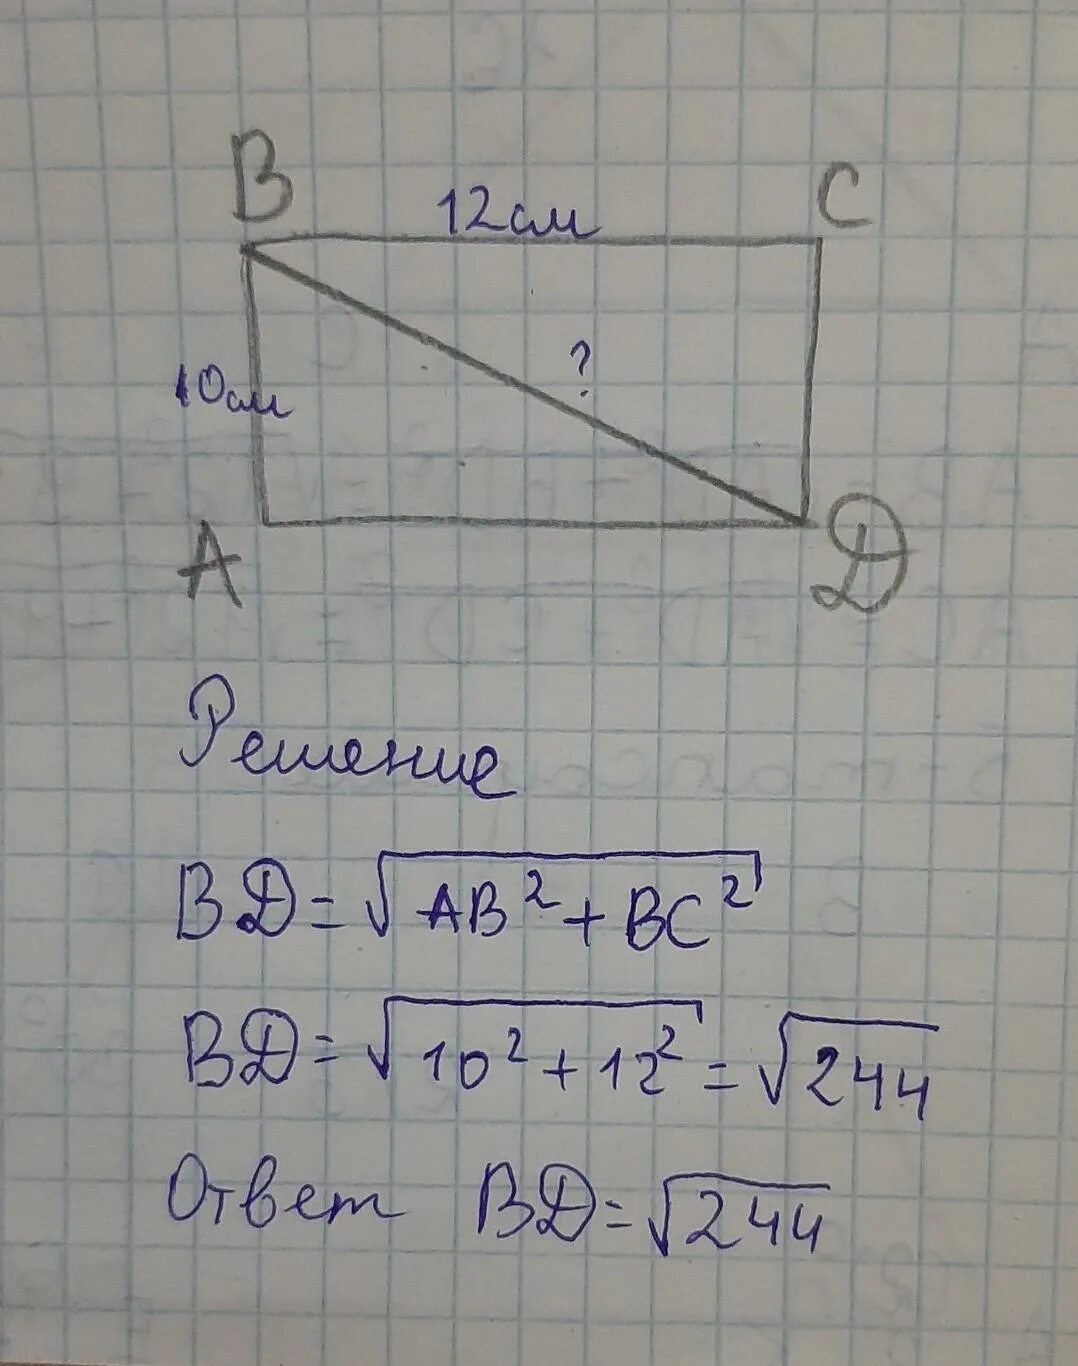 B 12см C
?
10см
A D
Решение
BD = √AB² + BC²
BD = √10² + 12² = √244
Ответ BD = √244